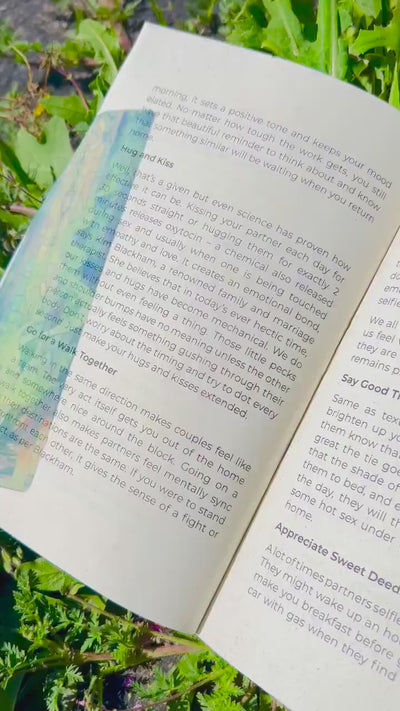 morning, it sets a positive tone and keeps your mood
elated. No matter how tough the work gets, you still
have that beautiful reminder to think about and know
something similar will be waiting when you return
home
Hug and Kiss
Well, that's a given but even science has proven how
effective it can be. Kissing your partner each day for
30 seconds straight or hugging them for exactly 2
minutes releases oxytocin – a chemical also released
during sex and usually when one is being touched
It creates an emotional bond,
Blackham, a renowned family and marriage
She believes that in today's ever hectic time,
and hugs have become mechanical. We do
out even feeling a thing. Those little pecks
or bumps have no meaning unless the other
really feels something gushing through their
worry about the timing and try to dot every
make your hugs and kisses extended.
Go for a Walk Together
in the same direction makes couples feel like
very act itself gets you out of the home
nice around the block. Going on a
also makes partners feel mentally sync
are the same. If you were to stand
other, it gives the sense of a fight or
as per Blackham.
We all
us feel
they are
remains p
Say Good Th
Same as tex
brighten up yo
them know tha
great the tie goe
that the shade o
them to bed, and e
the day, they will th
some hot sex under
home.
Appreciate Sweet Deed
A lot of times partners selfle
They might wake up an ho
make you breakfast before g
car with gas when they find